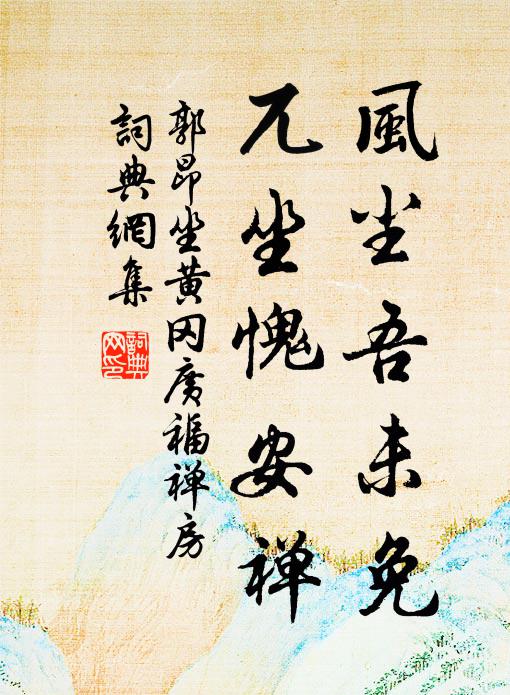 風尘吾未免
兀坐愧安禅
郭昂坐黄冈广福禅房
詞典網集
詞典
网印